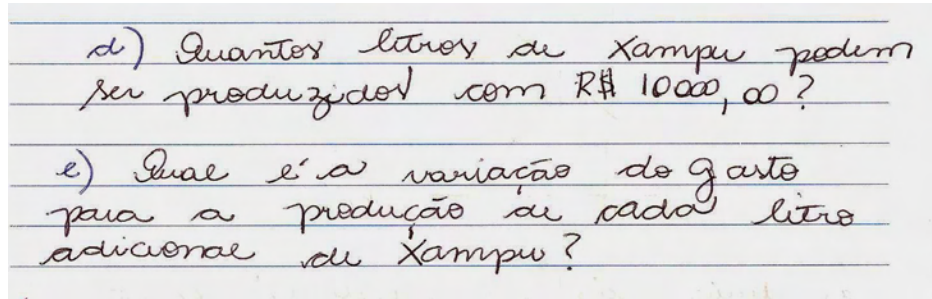 d) Quantos litros de xampu podem
ser produzidos com R$ 10000,00?
e) Qual é a variação do gasto
para a produção de cada litro
adicional de xampu?